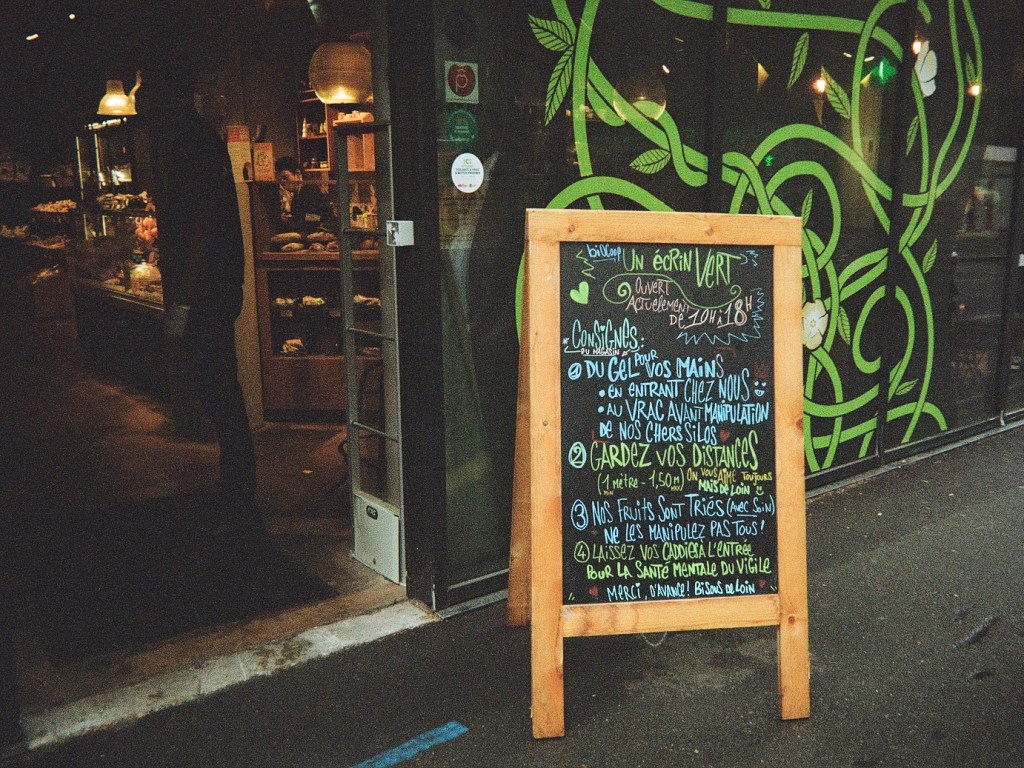 ICI
biscoop
UN ÉCRIN VERT
OUVERT
ACTUELLEMENT
DE 10H À 18H
CONSIGNES:
DU MAGASIN
① DU GEL POUR VOS MAINS
• EN ENTRANT CHEZ NOUS
• AU VRAC AVANT MANIPULATION
DE NOS CHERS SILOS
② GARDEZ VOS DISTANCES
(1 MÈTRE - 1,50M) ON VOUS AIME TOUJOURS
MAIS DE LOIN
③ NOS FRUITS SONT TRIÉS (AVEC SOIN)
NE LES MANIPULEZ PAS TOUS!
④ LAISSEZ VOS CADDIES À L'ENTRÉE
POUR LA SANTÉ MENTALE DU VIGILE
MERCI, D'AVANCE! BISOUS DE LOIN